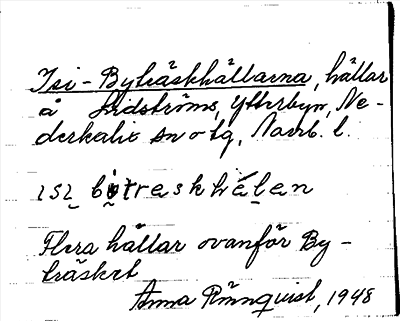 Isi-Byträskhällarna, hällar
å Lidströms, Ytterbyn, Ne-
derkalix sn o tg, Norrb. l.
ɪsɪ bytreskhälen
Flera hällar ovanför By-
träsket
Anna Rönnquist, 1948